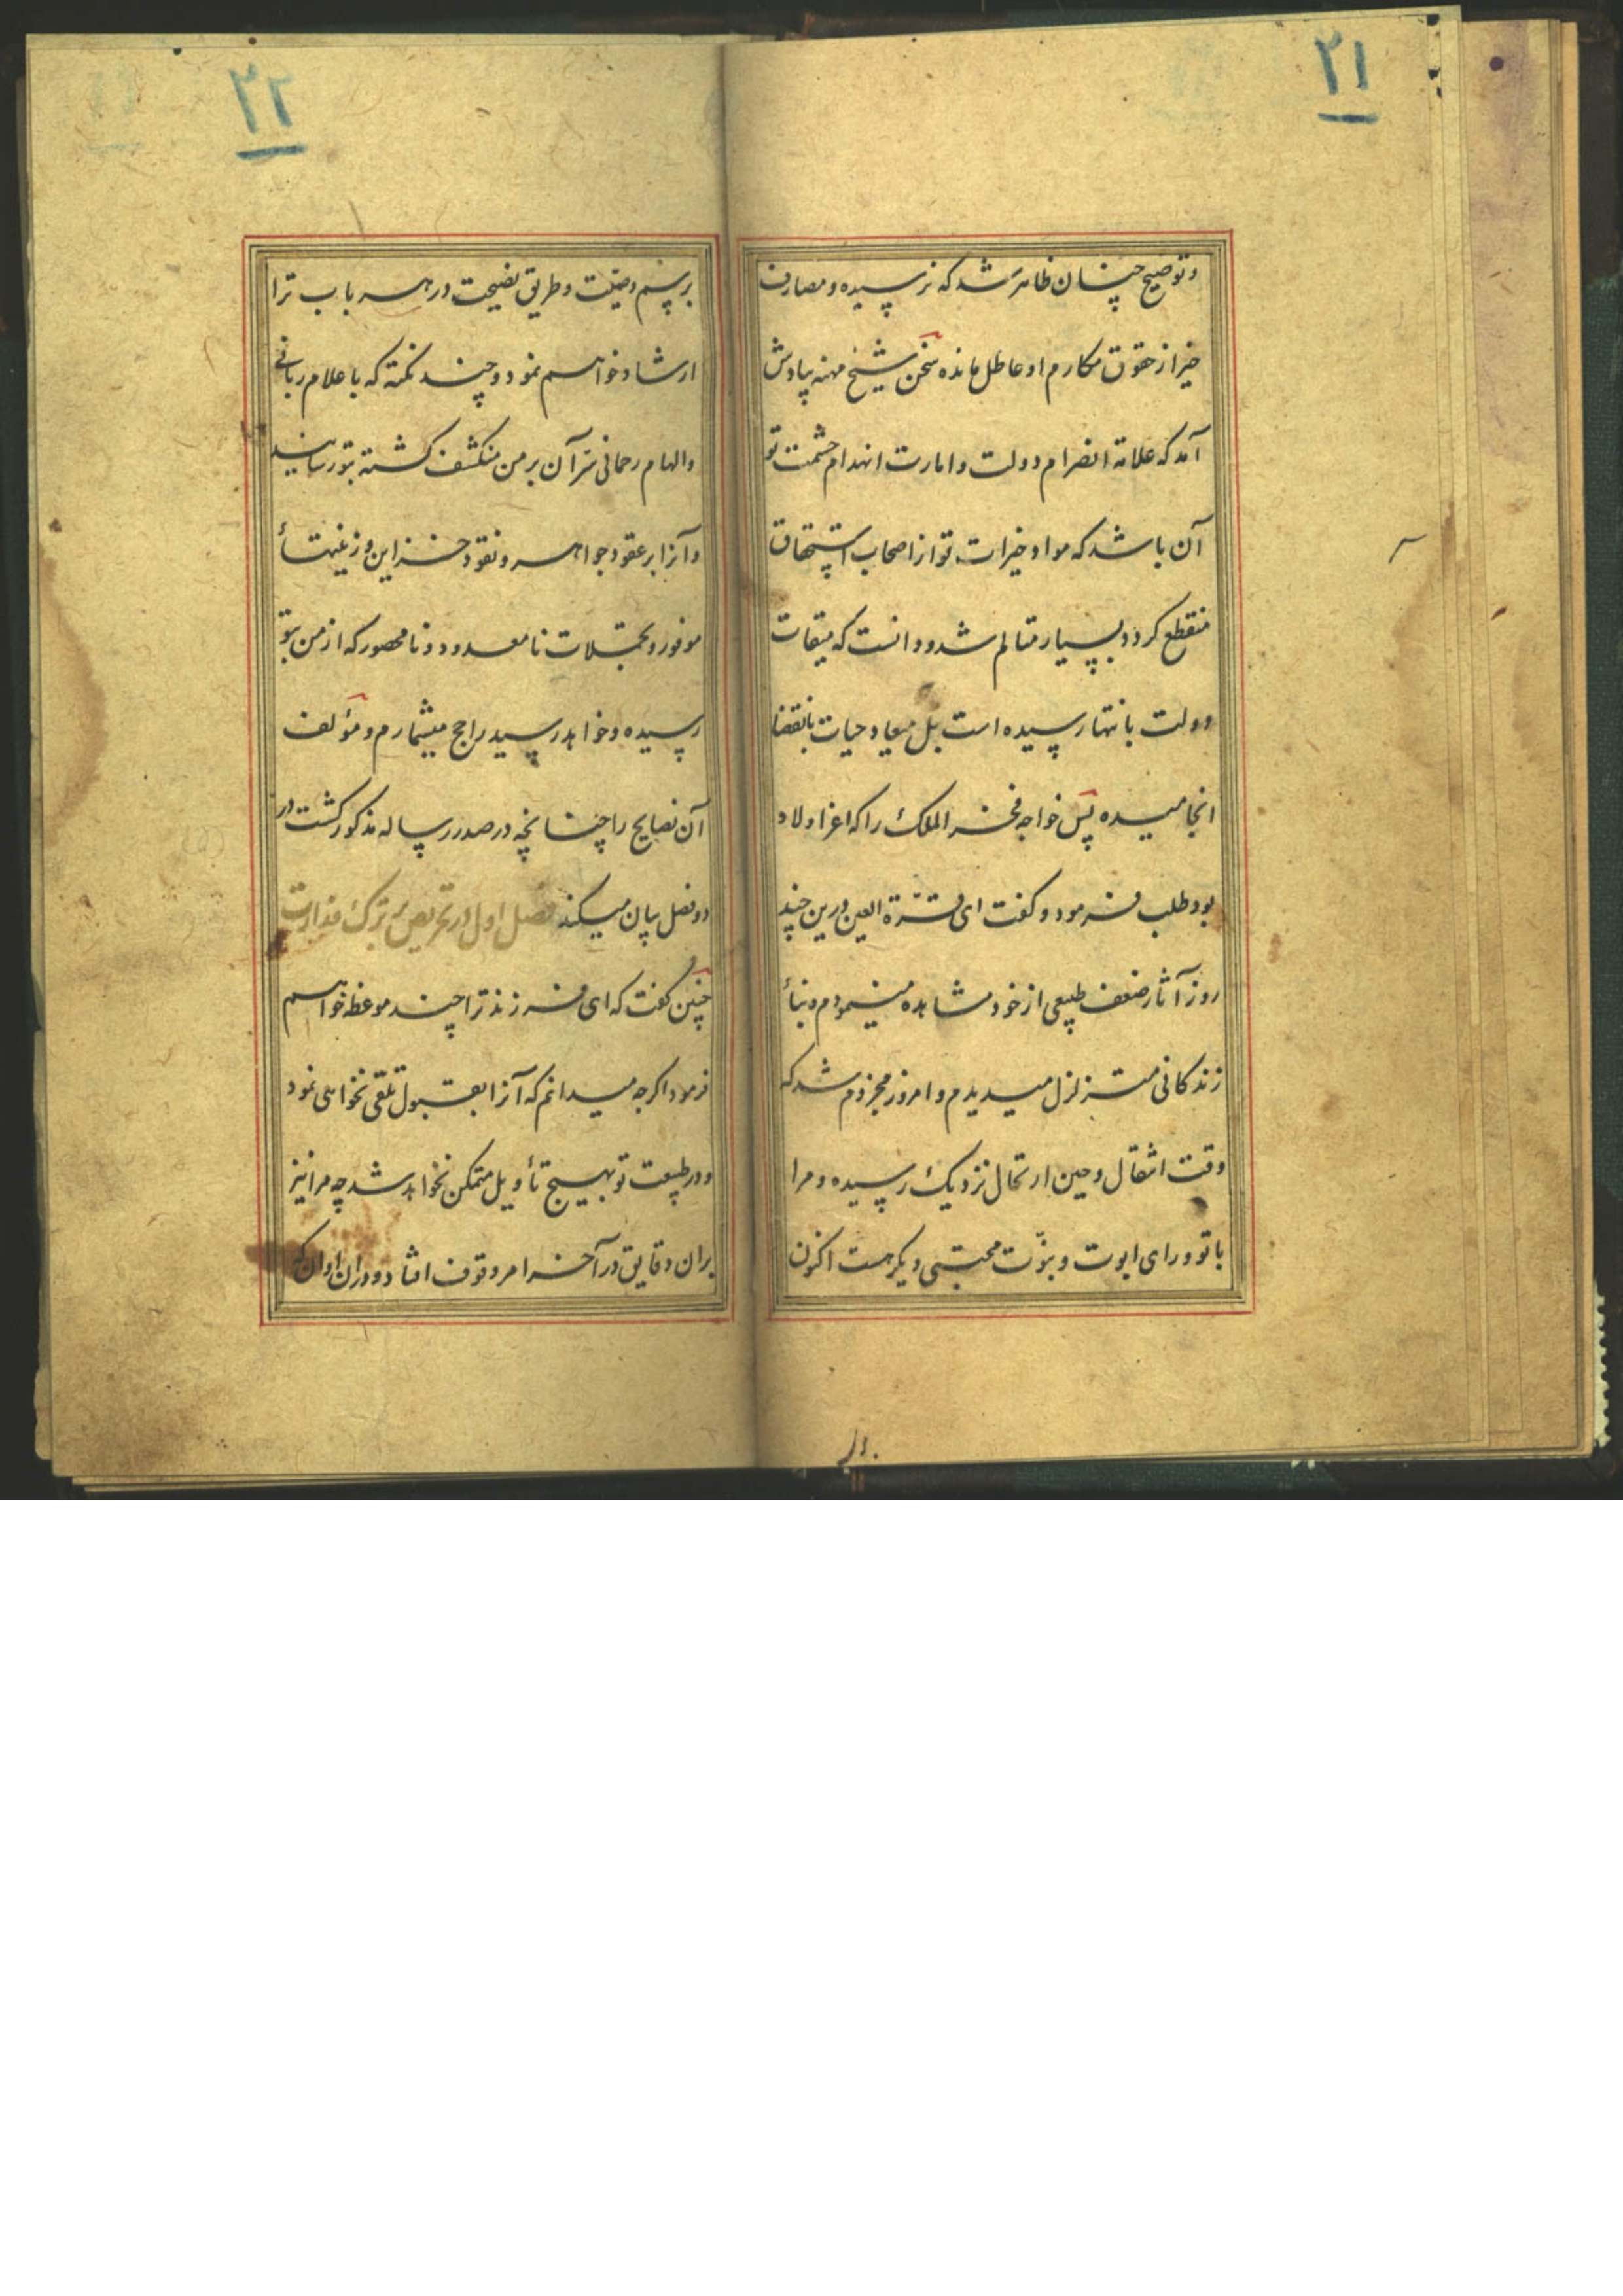 ۲۱
و توضیح چنان ظاهر شد که نرسیده و مصارف
خیر از حقوق مکارم او عاطل مانده سخن شیخ مهنه بیادش
آمد که علامة انصرام دولت و امارت انهدام حشمت تو
آن باشد که مواد خیرات تو از اصحاب استحقاق
منقطع کردد بسیار متالم شد و دانست که میقات
دولت بانتها رسیده است بل میعاد حیات بانقضا
انجامیده پس خواجه فخر الملک را که اعز اولاد
بود طلب فرمود و کفت ای قرّة العین درین چند
روز آثار ضعف طبیعی از خود مشاهده مینمودم و بنأ
زندکانی متزلزل میدیدم و امروز مجزوم شد که
وقت انتقال و حین ارتحال نزدیک رسیده و مرا
با تو ورای ابوت و بنوّت محبتی دیکر هست اکنون
۲۲
برسم وصیّت و طریق نصیحت در هر باب ترا
ارشاد خواهم نمود و چند نکته که باعلام ربانی
و الهام رحمانی سرّ آن بر من منکشف کشته بتو رسانید
و آنرا بر عقود جواهر و نقود خزاین و زینتهأ
موفور و تجملات نا معدود و نا محصور که از من بتو
رسیده و خواهد رسید راجح میشمارم و مؤلف
آن نصایح را چنانچه در صدر رساله مذکور کشت در
دو فصل بیان میکند فصل اول در تحریص بر ترک وزارت
چنین کفت که ای فرزند ترا چند موعظه خواهم
فرمود اکر چه میدانم که آنرا بقبول تلقی نخواهی نمود
و در طبیعت تو بهیچ تأویل متمکن نخواهد شد چه مرا نیز
بران دقایق در آخر امر وقوف افتاد و دران اوان که